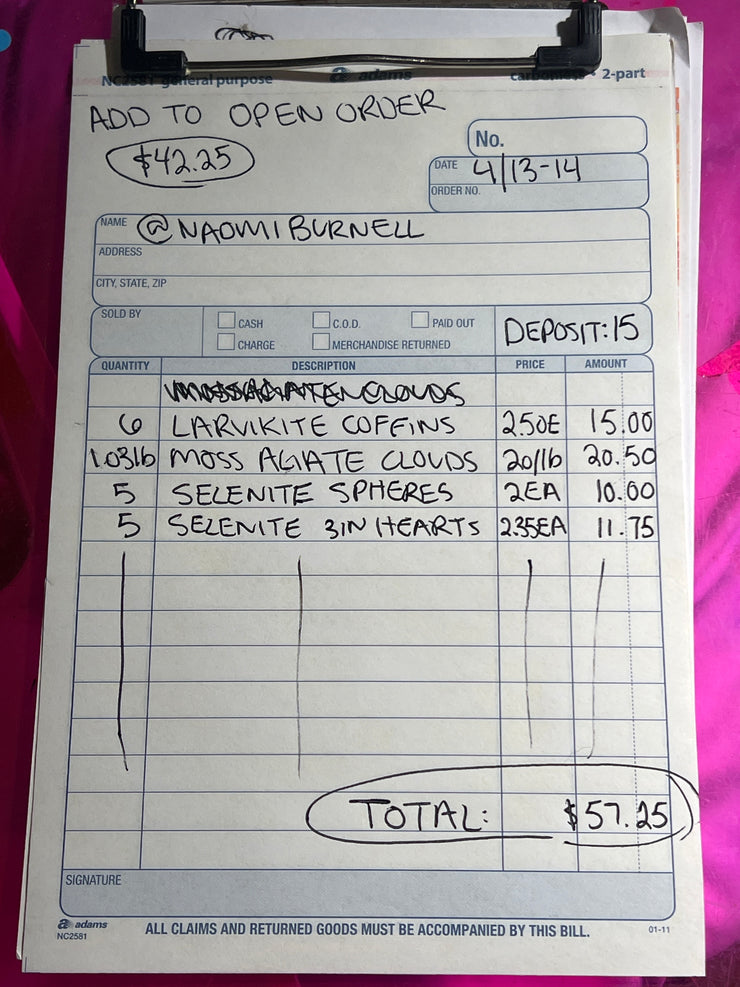 NC2581 general purpose adams carbonless • 2-part
ADD TO OPEN ORDER
$42.25
No.
DATE 4/13-14
ORDER NO.
NAME @NAOMIBURNELL
ADDRESS
CITY, STATE, ZIP
SOLD BY
CASH C.O.D. PAID OUT
CHARGE MERCHANDISE RETURNED
DEPOSIT: 15
QUANTITY DESCRIPTION PRICE AMOUNT
MOSS AGATE CLOUDS
6 LARVIKITE COFFINS 2.50E 15.00
1.03lb MOSS AGATE CLOUDS 20/lb 20.50
5 SELENITE SPHERES 2EA 10.00
5 SELENITE 3IN HEARTS 2.35EA 11.75
TOTAL: $57.25
SIGNATURE
adams
NC2581
ALL CLAIMS AND RETURNED GOODS MUST BE ACCOMPANIED BY THIS BILL.
01-11